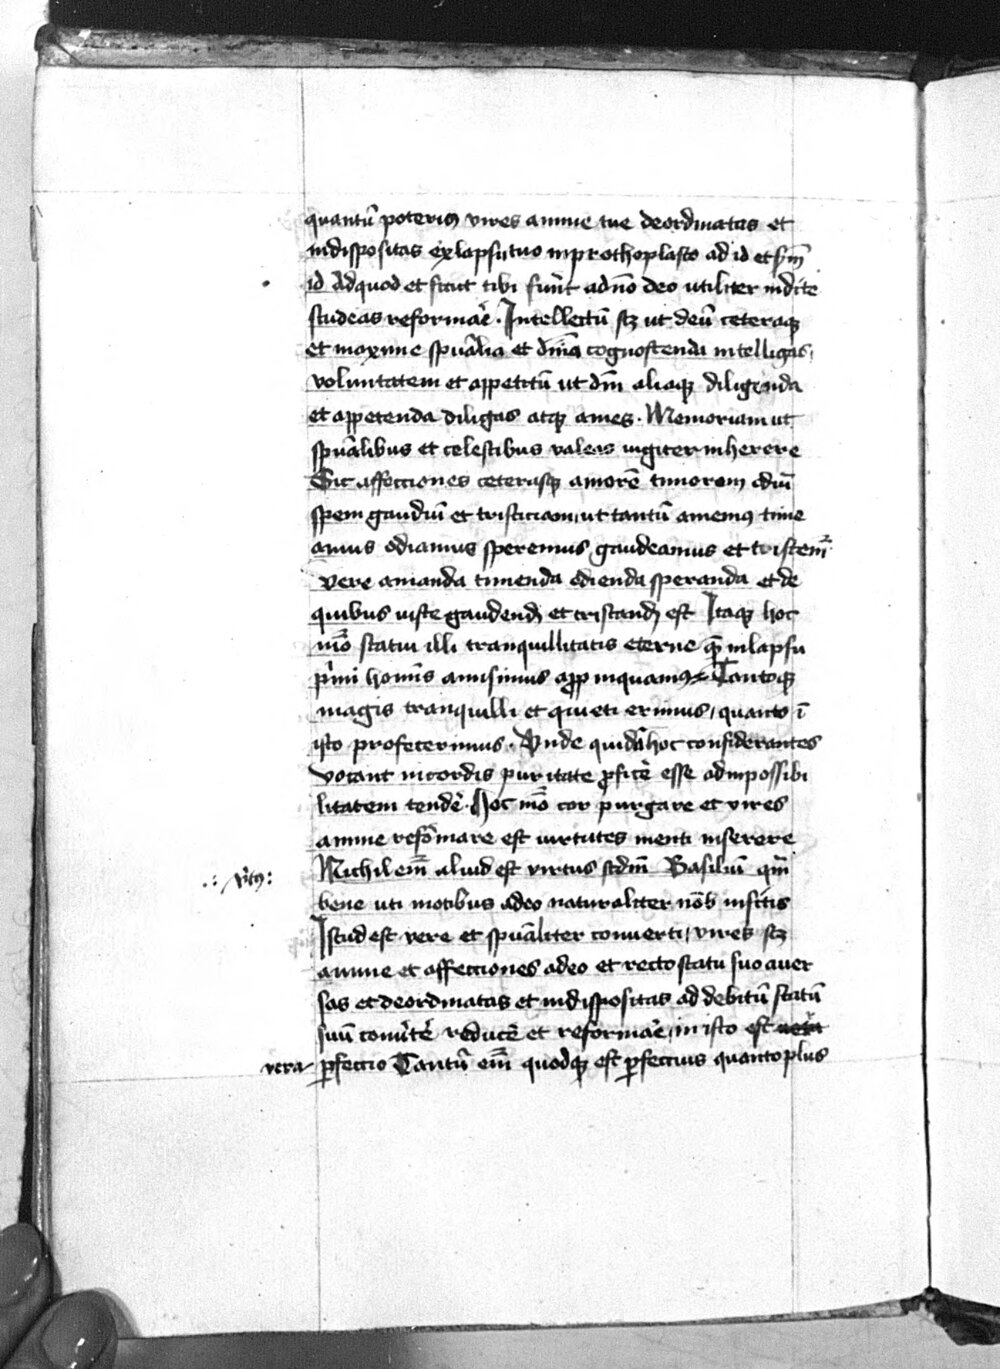 quantū poteris vires anime tue deordinatas et
indispositas ex lapsu tuo in prothoplasto ad id et scdm̄
id Ad quod et sicut tibi fuer̄t ad nō deo utiliter indite
studeas reformar̄e. Intellectū scz ut deū ceteraqꝫ
et maxime spūalia et diuīa cognoscenda intelligas,
voluntatem et appetitū ut dm̄ aliaqꝫ diligenda
et appetenda diligas atqꝫ ames. Memoriam ut
spūalibus et celestibus valeas iugiter inherere
Sic affecciones ceterasqꝫ amorē timorem odiū
spem gaudiū et tristiciam, ut tantū amemꝰ time
amus odiamus speremus gaudeamus et tristem̄
vere amanda timenda odienda speranda et de
quibus iuste gaudend̄ et tristand̄ est Itaqꝫ hoc
mō statui illi tranquillitatis eterne qm̄ in lapsu
p̄mi homīs amisimus app̄inquamꝰ Tantoqꝫ
magis tranquilli et quieti erimus, quanto ī
isto profecerimus. Vnde quidā hoc considerantes
vocant in cordis puritate ꝓficē esse ad inpossibi
litatem tendē. Hoc mō cor purgare et vires
anime refōmare est virtutes menti inserere
Nichil em̄ aliud est virtus scdm̄ Basiliū qm̄
.: v̄tꝰ:
bene uti motibus a deo naturaliter nob̄ insitis
Istud est vere et spūaliter conuerti, vires scz
anime et affecciones a deo et recto statu suo auer
sas et deordinatas et indispositas ad debitū statū
suū conuītē reducē et reformāe, in isto est
vera ꝑfeccio Tantū em̄ quodqꝫ est ꝑfeccius quanto plus